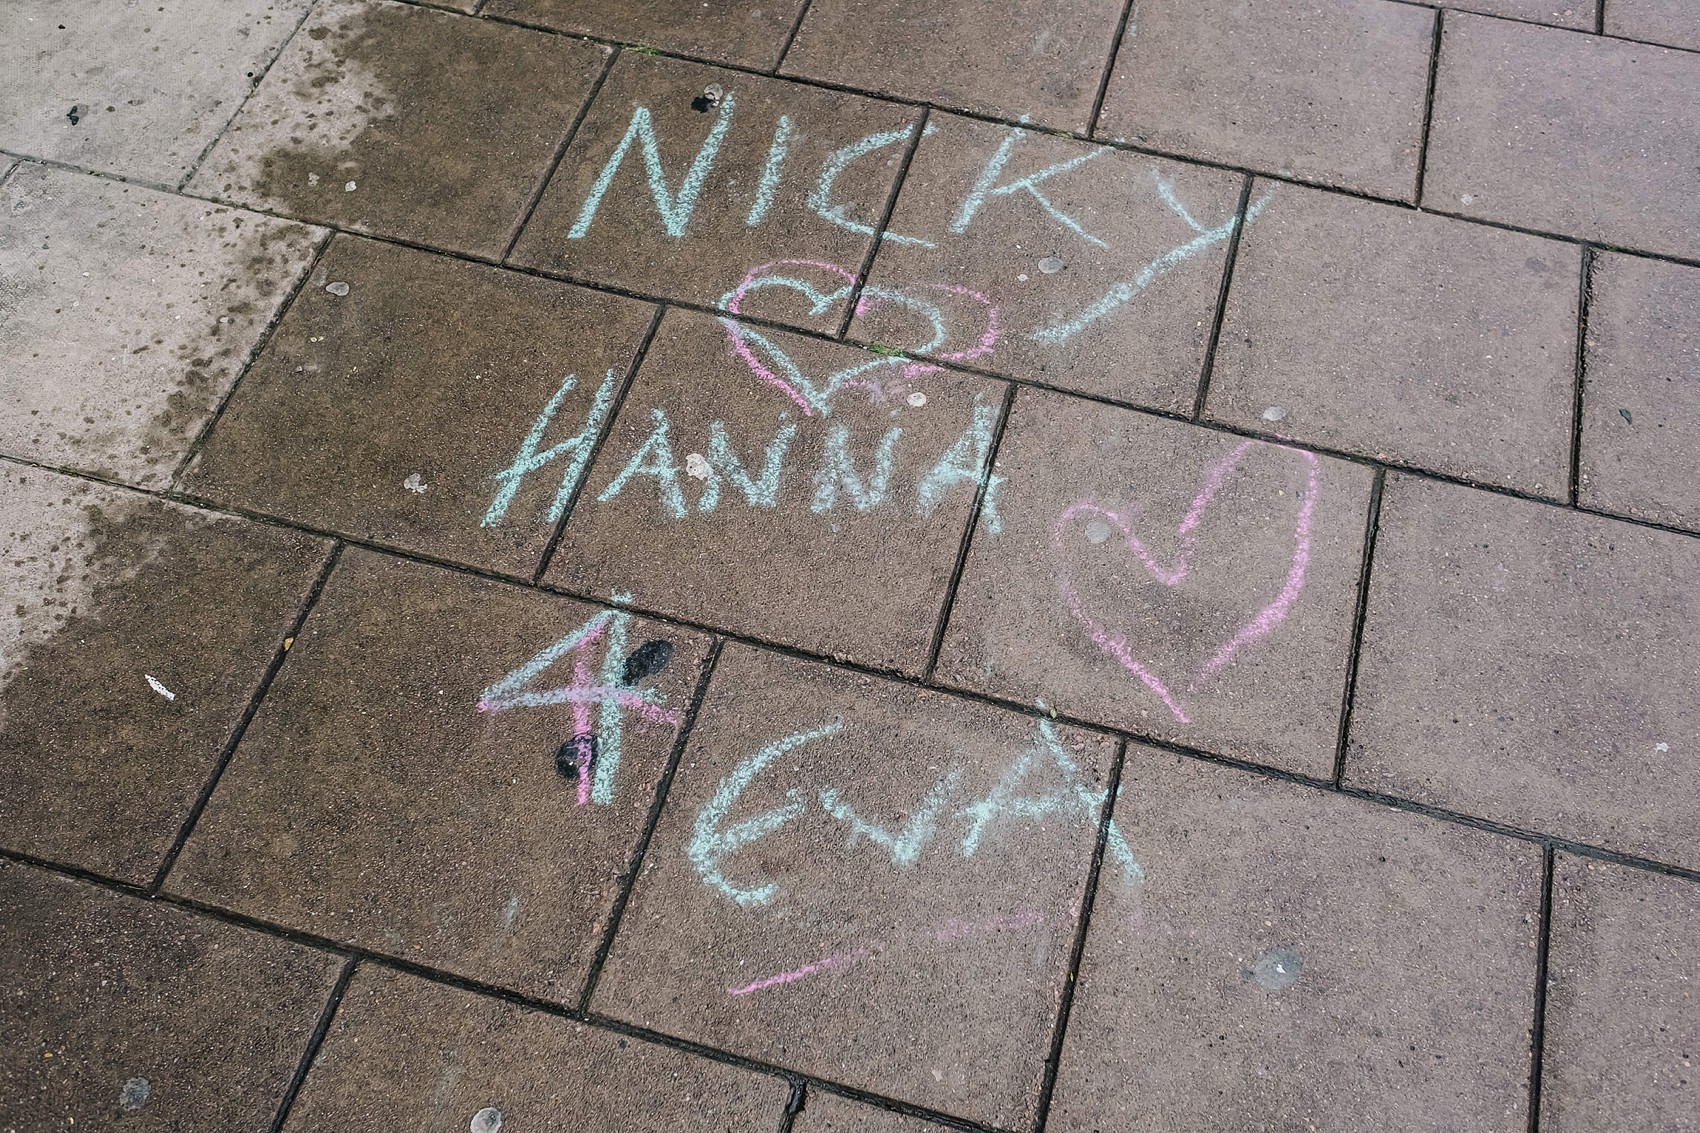 NICKY
HANNA
4
EVA